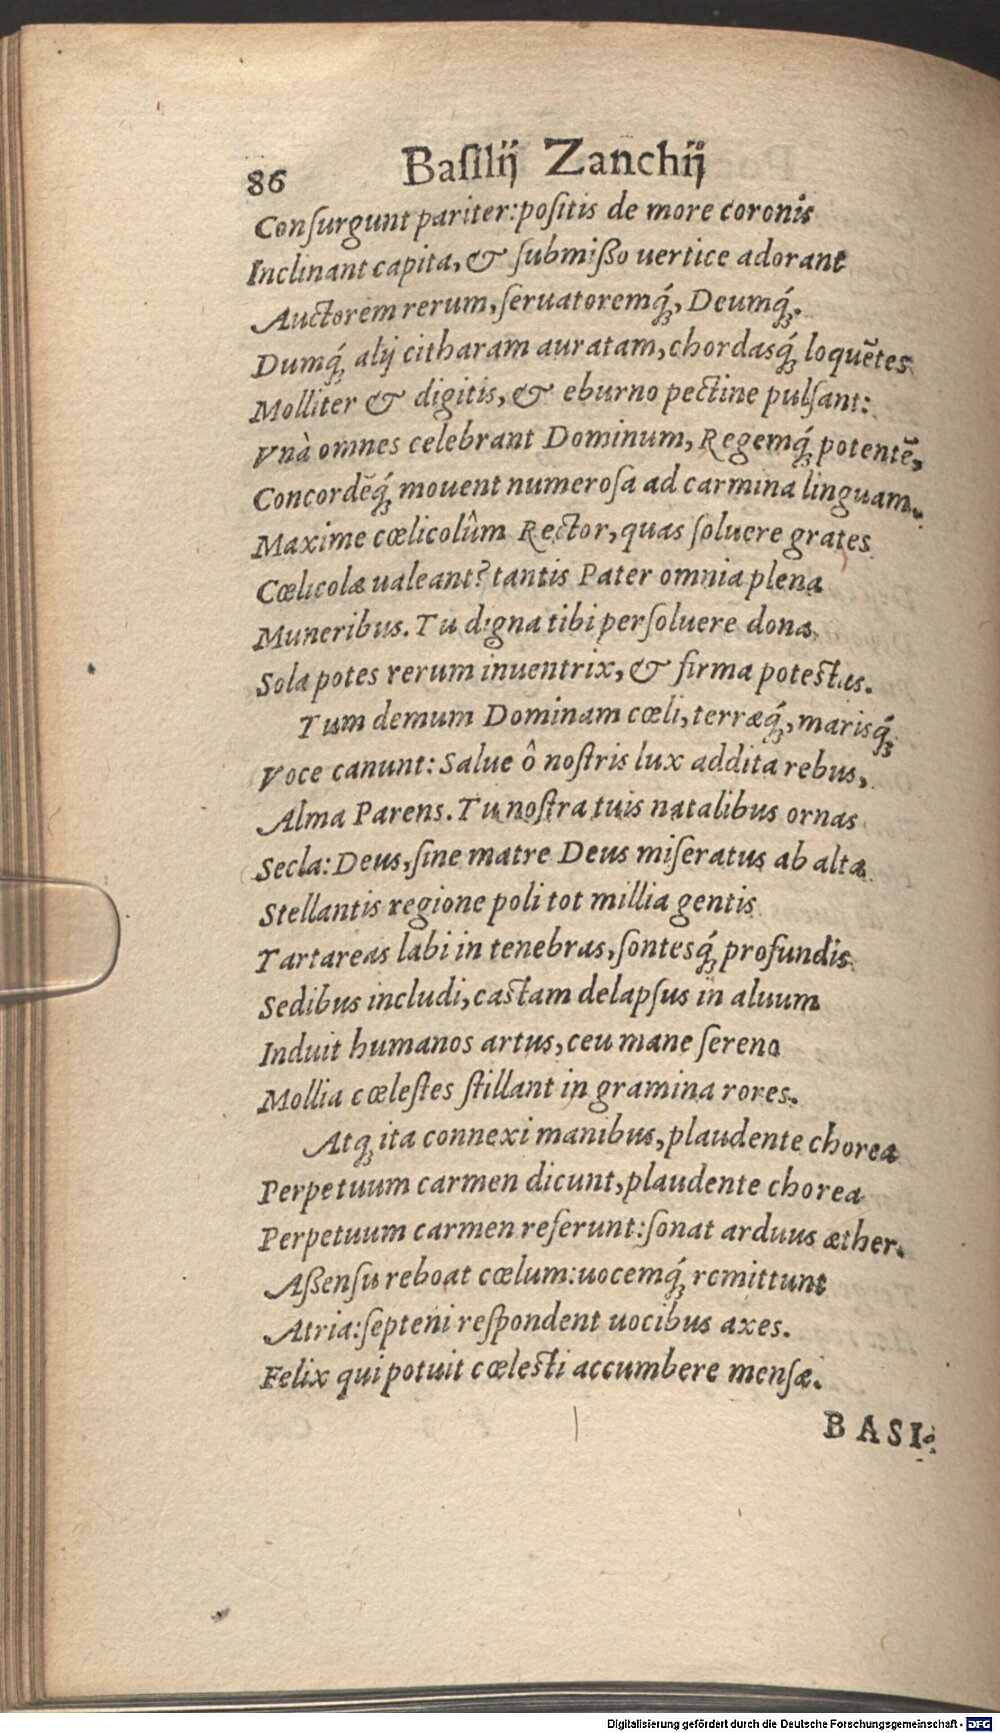 86 Baſilij Zanchij
Conſurgunt pariter: poſitis de more coronis
Inclinant capita, & ſubmißo uertice adorant
Auctorem rerum, ſeruatoremq́;, Deumq́;.
Dumq́; alij citharam auratam, chordasq́; loquẽtes
Molliter & digitis, & eburno pectine pulſant:
Vnà omnes celebrant Dominum, Regemq́; potentẽ,
Concordẽq́; mouent numeroſa ad carmina linguam.
Maxime cœlicolûm Rector, quas ſoluere grates
Cœlicolæ ualeant? tantis Pater omnia plena
Muneribus. Tu digna tibi perſoluere dona,
Sola potes rerum inuentrix, & firma poteſtas.
Tum demum Dominam cœli, terræq́;, marisq́;
Voce canunt: Salue ô noſtris lux addita rebus,
Alma Parens. Tu noſtra tuis natalibus ornas
Secla: Deus, ſine matre Deus miſeratus ab alta
Stellantis regione poli tot millia gentis
Tartareas labi in tenebras, ſontesq́; profundis
Sedibus includi, caſtam delapſus in aluum
Induit humanos artus, ceu mane ſereno
Mollia cœleſtes ſtillant in gramina rores.
Atq; ita connexi manibus, plaudente chorea
Perpetuum carmen dicunt, plaudente chorea
Perpetuum carmen referunt: ſonat arduus æther.
Aßenſu reboat cœlum: uocemq́; remittunt
Atria: ſepteni reſpondent uocibus axes.
Felix qui potuit cœleſti accumbere menſæ.
BASI-
Digitalisierung gefördert durch die Deutsche Forschungsgemeinschaft - DFG